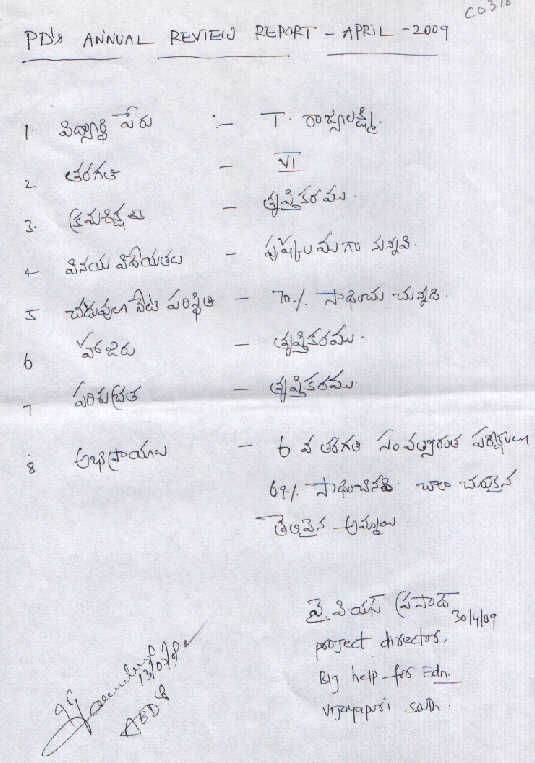 PD's ANNUAL REVIEW REPORT - APRIL - 2009
1 విద్యార్థి పేరు :- T. రాజ్యలక్ష్మి.
2. తరగతి - VI
3. క్రమశిక్షణ - తృప్తికరము.
4 వినయ విధేయతలు - పుష్కలముగా నున్నవి.
5 చదువులో నేటి పరిస్థితి - 70.% సాధించు చున్నది.
6 హాజరు - తృప్తికరము.
7 పరిశుభ్రత - తృప్తికరము
8 అభిప్రాయం - 6 వ తరగతి సంవత్సరాంత పరీక్షలలో
69% సాధించినది చాలా చురుకైన
తెలివైన అమ్మాయి
వై. పియస్ ప్రసాద్ 30/4/09
project director,
Big help - for Edn.
vijayapuri south.